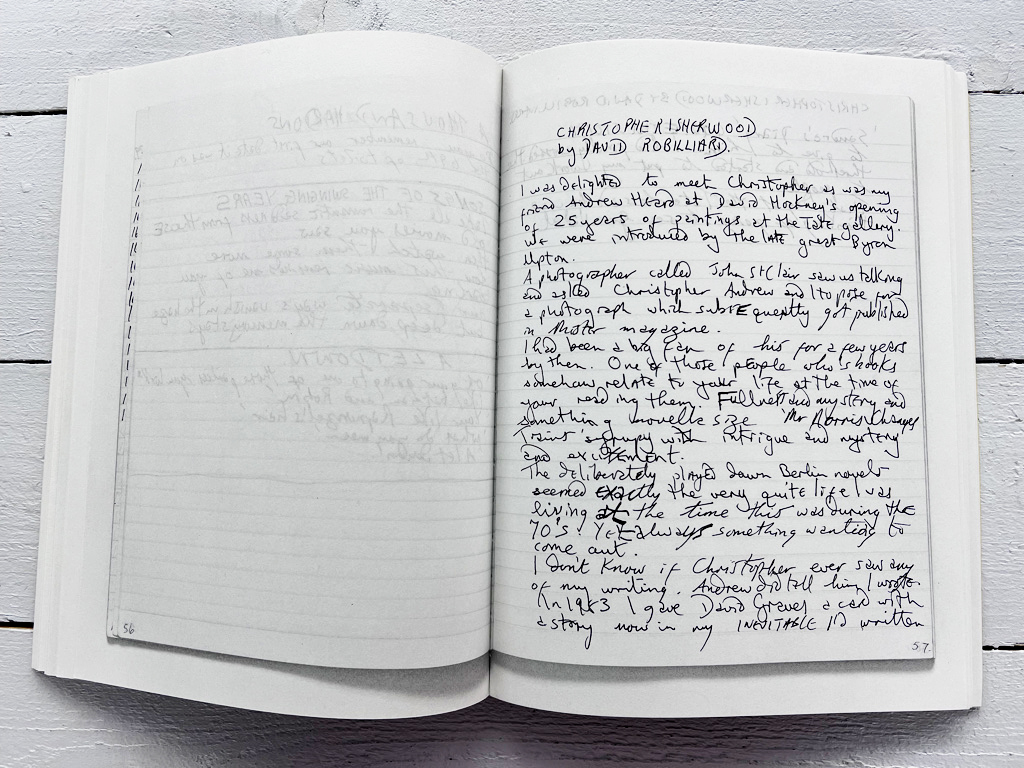 56
CHRISTOPHER ISHERWOOD
by DAVID ROBILLIARD
I was delighted to meet Christopher as was my
friend Andrew Heard at David Hockney's opening
of 25 years of paintings at the Tate gallery.
We were introduced by the late great Byron
Upton.
A photographer called John St Clair saw us talking
and asked Christopher Andrew and I to pose for
a photograph which subsequently got published
in magazine.
I had been a big fan of his for a few years
by then. One of those people who's books
somehow relate to your life at the time of
your reading them. Fullness and mystery and
something novelle size 'Mr Norris Changes
Trains' with intrigue and mystery
and excitement.
The deliberately played down Berlin novels
seemed exactly the very quite life I was
living at the time this was during the
70's. Yet always something wanting to
come out.
I don't know if Christopher ever saw any
of my writing. Andrew did tell him I wrote.
In 1983 I gave David Graves a card with
a story now in my INEVITABLE I'D written
57